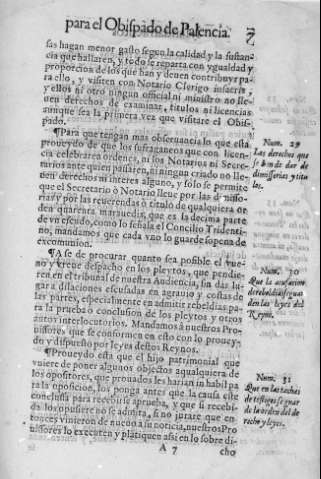 para el Obispado de Palencia. 7
sas hagan menor gasto segun la calidad y la sustan
cia que hallaren, y todo se reparta con ygualdad y
proporcion de los que han y deuen contribuyr pa
ra ello, y visiten con Notario Clerigo in sacris,
y ellos ni otro ningun official ni ministro no lle
uen derechos de examinar, titulos ni licencias
aunque sea la primera vez que visitare el Obis-
pado.
¶Para que tengan mas obseruancia lo que esta
proueydo de que los sufraganeos que con licen
cia celebraren ordenes, ni sos Notarios ni Secre-
tarios ante quien passaren, ni ningun criado no lle
uen derechos ni interes alguno, y solo se permite
que el Secretario ò Notario lleue por las dimisso-
rias y por las reuerendas ò titulo de qualquiera or
den quarenta marauedis, que es la decima parte
de vn escudo, como lo señala el Concilio Tridenti-
no, mandamos que cada vno lo guarde so pena de
excomunion.
Num. 29
Las derechos que
se han de dar de
dimissorias y titu
los.
¶A se de procurar quanto sea posible el bue-
no y breue despacho en los pleytos, que pendie-
ren en el tribunal de nuestra Audiencia, sin dar lu-
gar a dilaciones escusadas en agrauio y costas de
las partes, especialmente en admitir rebeldias pa-
ra la prueba ò conclusion de los pleytos y otros
autos interlocutorios. Mandamos à nuestros Pro
uissores que se conformen en esto con lo prouey-
do y dispuesto por leyes destos Reynos.
Num. 30
Que la acusacion
de rebeldias seguar
den las leyes del
Reyno.
¶Proueydo esta que el hijo patrimonial que
quiere de poner algunos objectos a qualquiera de
los opositores, que prouados les harian inhabil pa
ra la oposicion, los ponga antes que la causa este
conclussa para recebirse a prueba, y que si recebi-
da los opusiere no se admita, si no jurare que en-
tonces vinieron de nueuo a su noticia, nuestros Pro
uissores lo executen y platiquen assi en lo sobre di-
Num. 31
Que en las tachas
de testigos se guar
de la orden del de
recho y leyes.
A 7
cho